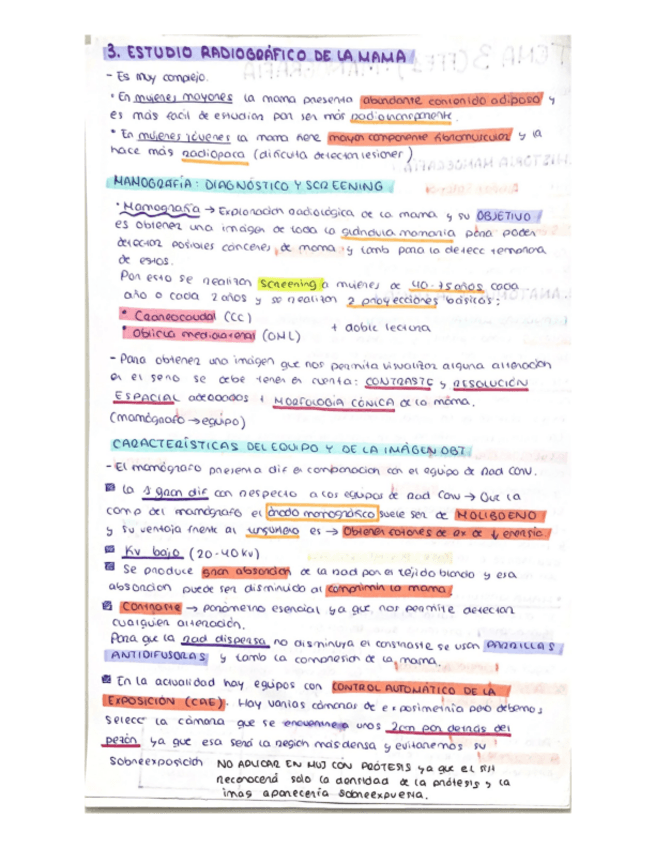 3. ESTUDIO RADIOGRÁFICO DE LA MAMA
- Es muy complejo.
• En mujeres mayores la mama presenta abundante contenido adiposo y
es más facil de estudiar por ser más radiotransparente.
• En mujeres jóvenes la mama tiene mayor componente fibromuscular y la
hace más radiopaca (dificulta detectar lesiones)
MAMOGRAFÍA: DIAGNÓSTICO Y SCREENING
• Mamografía → Exploración radiológica de la mama y su OBJETIVO
es obtener una imagen de toda la glándula mamaria para poder
detectar posibles cánceres de mama y tamb para la detecc temprana
de estos.
Por esto se realizan screening a mujeres de 40-75 años cada
año o cada 2 años y se realizan 2 proyecciones básicas:
• Craneocaudal (CC)
• Oblicua mediolateral (OML)
+ doble lectura
- Para obtener una imagen que nos permita visualizar alguna alteración
en el seno se debe tener en cuenta: CONTRASTE y RESOLUCIÓN
ESPACIAL adecuados + MORFOLOGÍA CÓNICA de la mama.
(mamógrafo → equipo)
CARACTERÍSTICAS DEL EQUIPO Y DE LA IMAGEN OBT
- El mamógrafo presenta dif en comparación con el equipo de Rad Conv.
La 1 gran dif con respecto a los equipos de Rad Conv → Que la
comp del mamógrafo el ánodo mamográfico suele ser de MOLIBDENO
y su ventaja frente al tungsteno es → Obtener fotones de rx de ↓ energía.
Kv bajo (20-40kv)
Se produce gran absorción de la rad por el tejido blando y esa
absorción puede ser disminuida al comprimir la mama.
Contraste → parámetro esencial ya que, nos permite detectar
cualquier alteración.
Para que la rad dispersa no disminuya el contraste se usan PARRILLAS
ANTIDIFUSORAS y tamb la compresión de la mama.
En la actualidad hay equipos con CONTROL AUTOMÁTICO DE LA
EXPOSICIÓN (CAE). Hay varias cámaras de exposimetría pero debemos
selecc la cámara que se encuentre a unos 2cm por detrás del
pezón ya que esa será la región más densa y evitaremos su
sobreexposición NO APLICAR EN MUJ CON PRÓTESIS ya que el
reconocerá solo la densidad de la prótesis y la
imag aparecería sobreexpuesta.